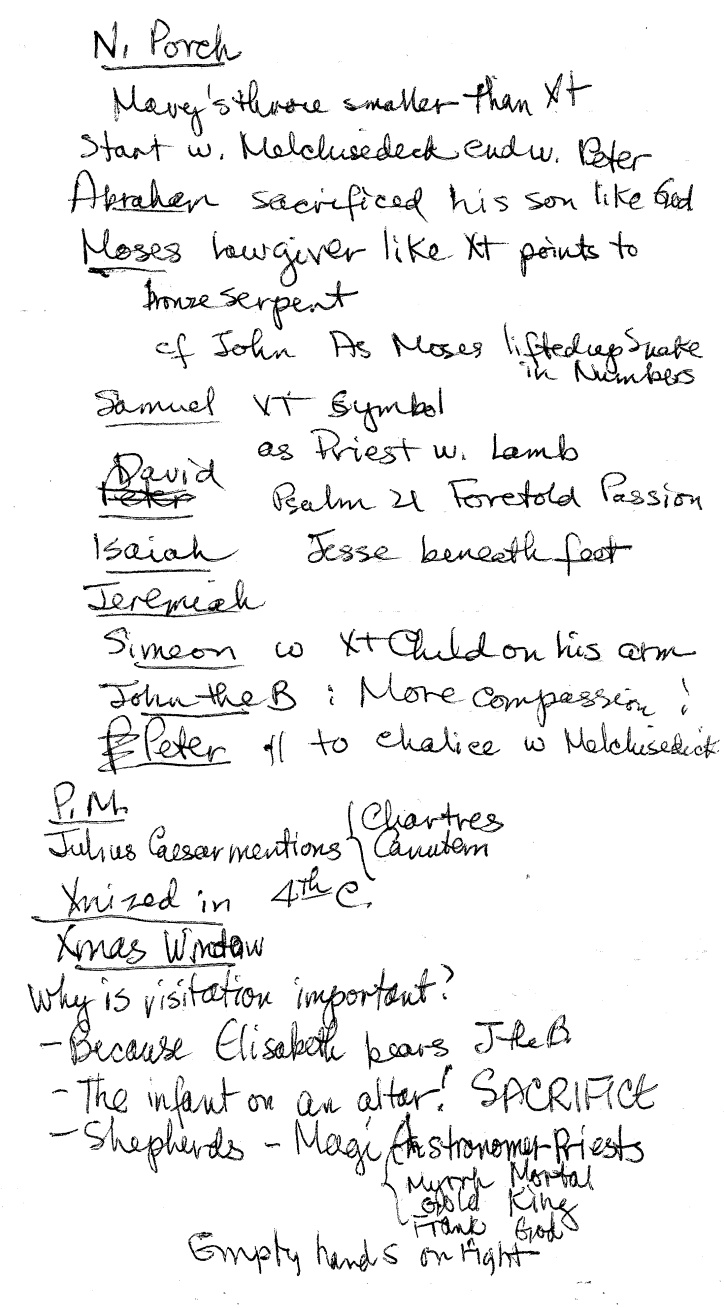 N. Porch
Mary's throne smaller than Xt
Start w. Melchisedeck end w. Peter
Abraham sacrificed his son like God
Moses lawgiver like Xt points to
bronze serpent
cf John As Moses lifted up Snake
in Numbers
Samuel VT Symbol
as Priest w. Lamb
David
Peter
Psalm 21 Foretold Passion
Isaiah Jesse beneath feet
Jeremiah
Simeon w Xt Child on his arm
John the B : More compassion !
Peter // to chalice w Melchisedick
P.M.
Julius Caesar mentions { Chartres
Canutem
Xnized in 4th C.
Xmas Window
Why is visitation important?
- Because Elisabeth bears J the B.
- The infant on an altar! SACRIFICE
- Shepherds - Magi Astronomer-Priests
Myrrh Mortal
Gold King
Frank God
Empty hands on right